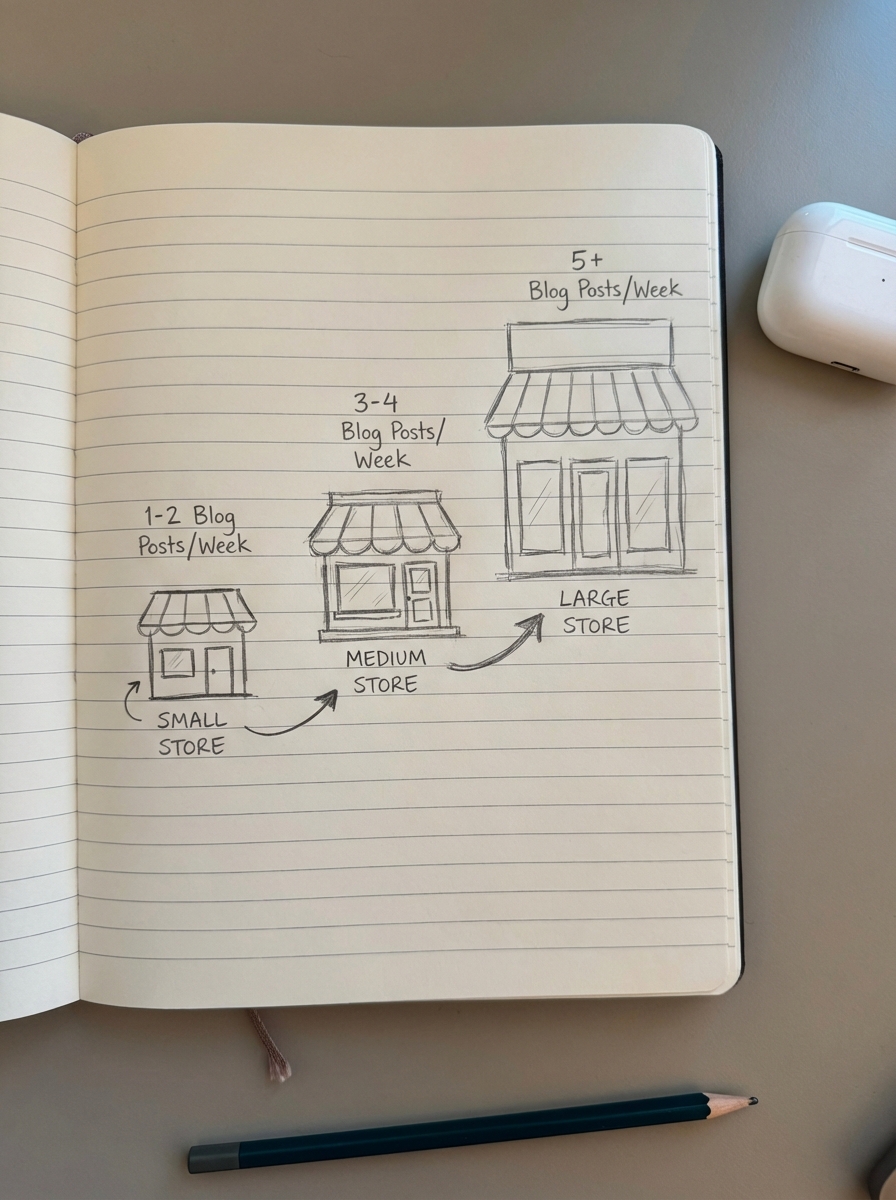 5+
Blog Posts/Week
3-4
Blog Posts/
Week
1-2 Blog
Posts/Week
LARGE
STORE
MEDIUM
STORE
SMALL
STORE